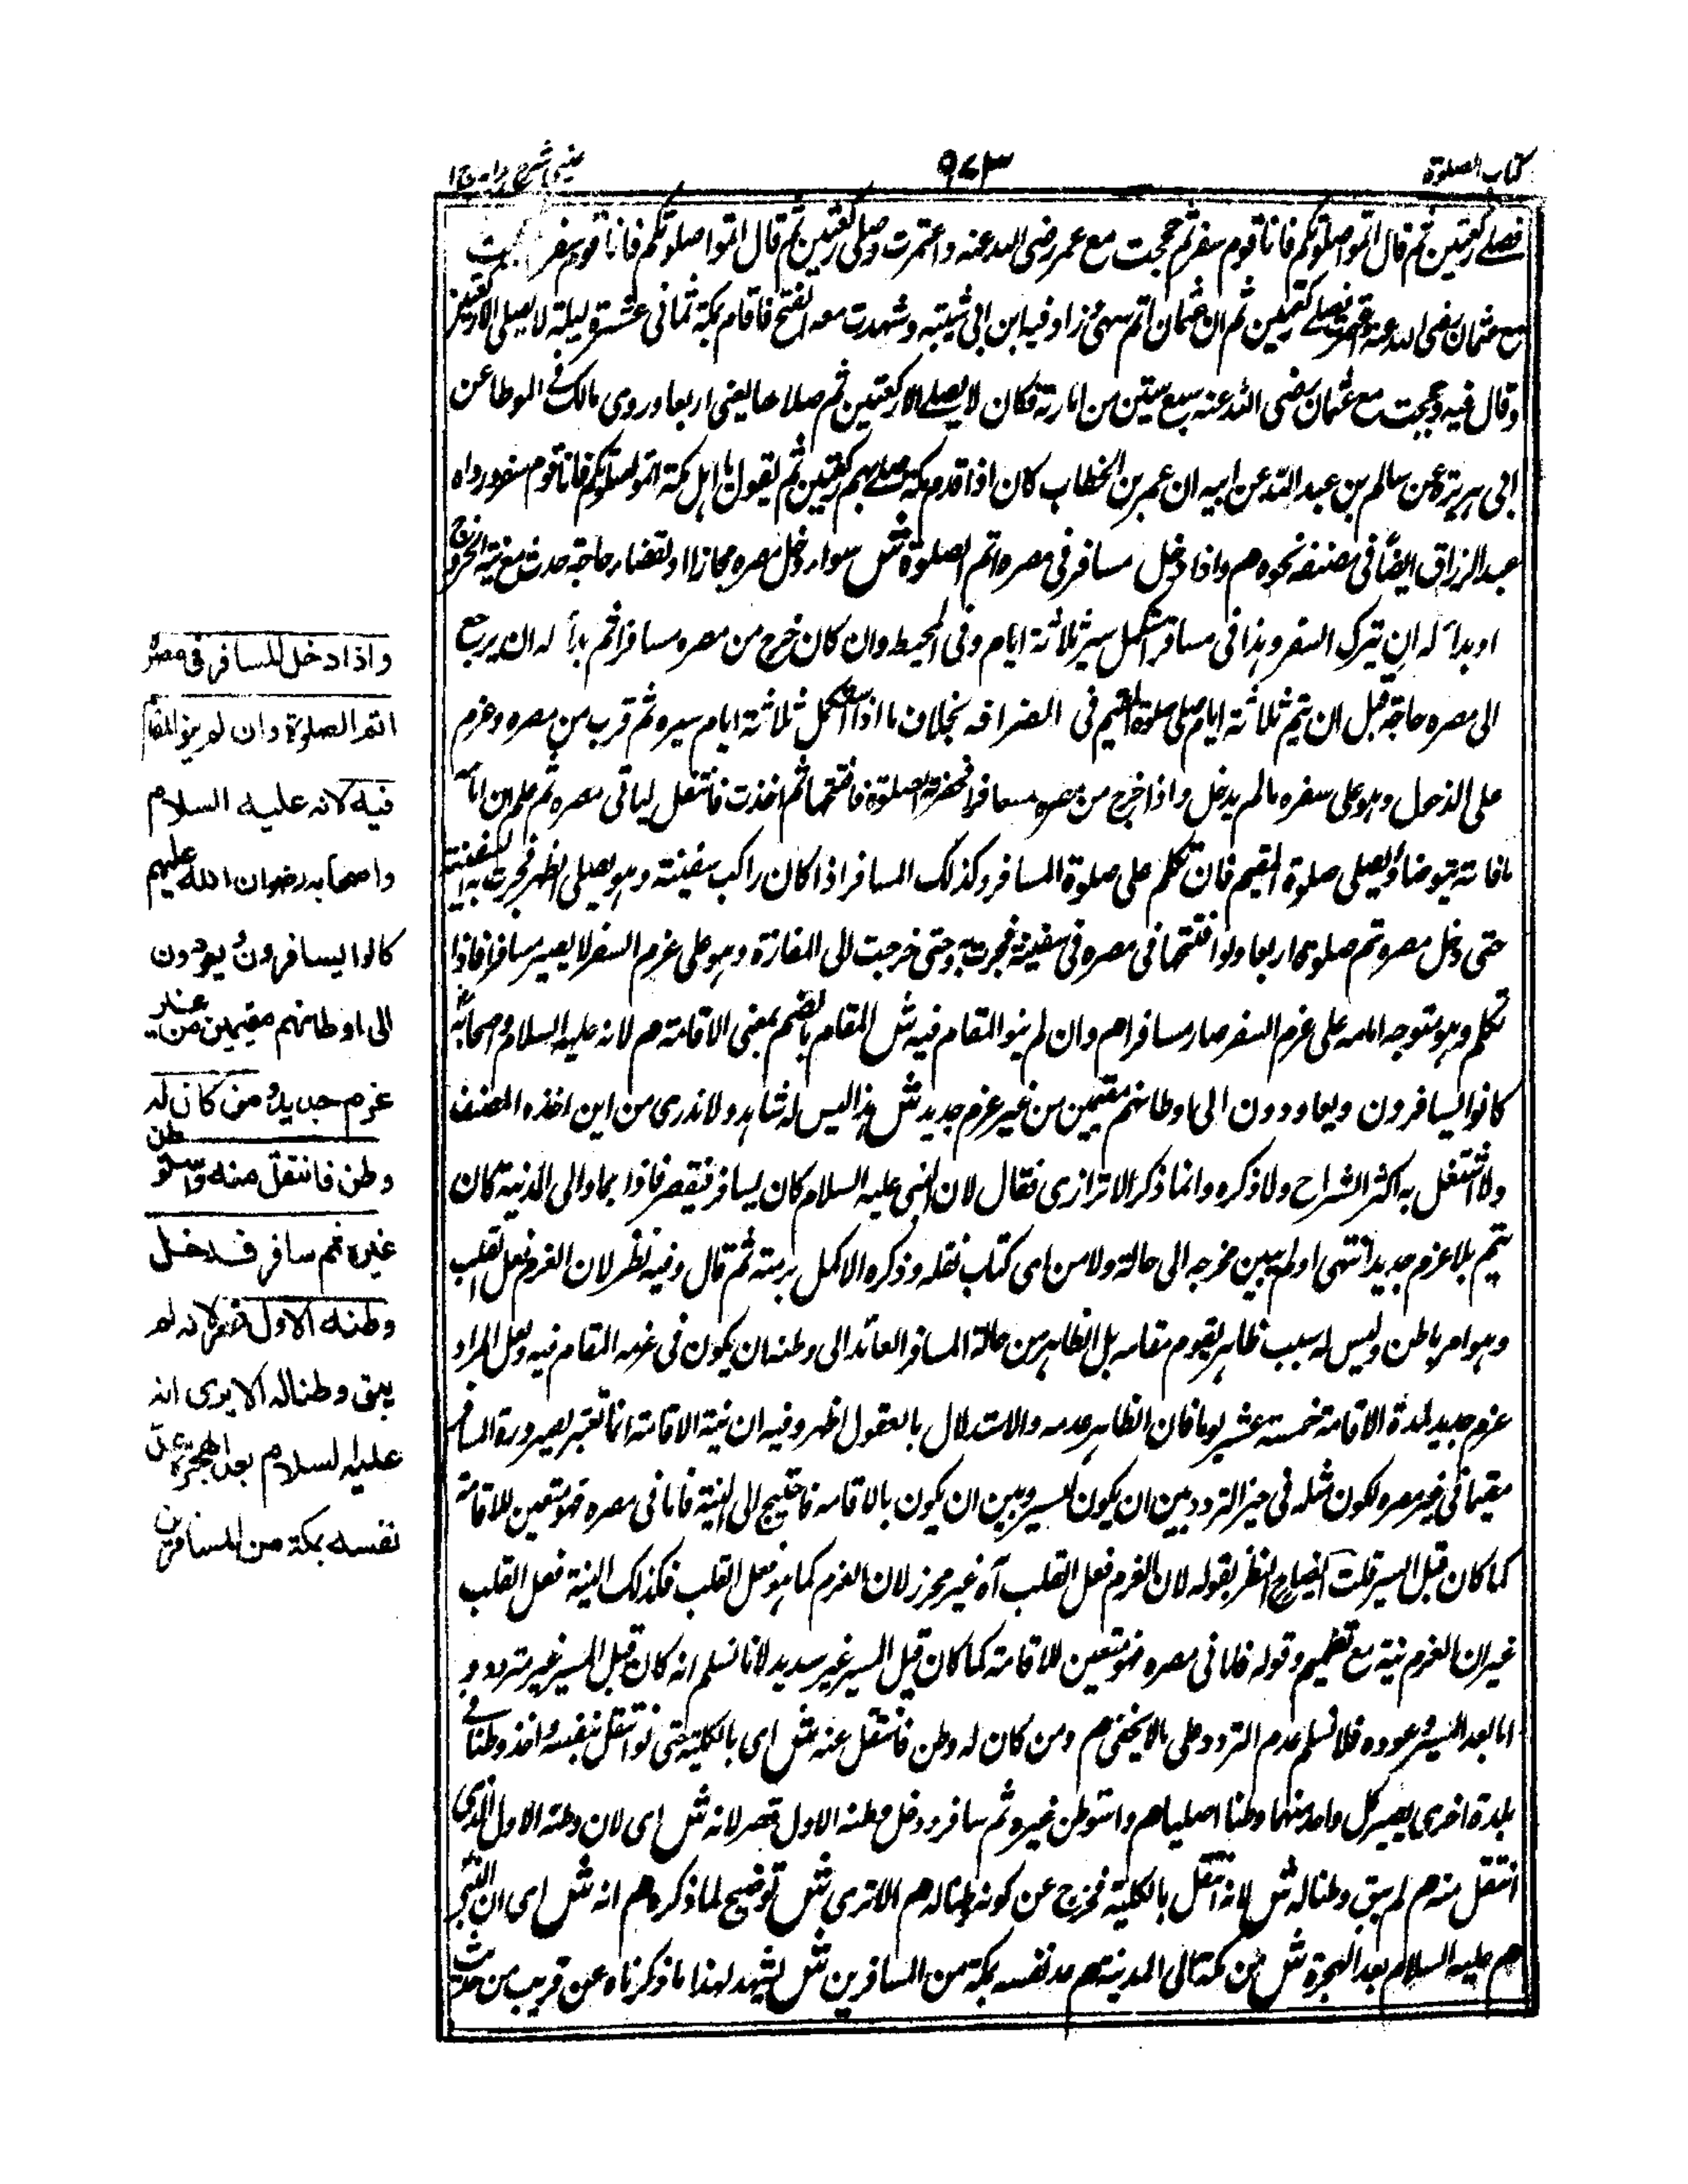 كتاب الصلوة
٩٧٣
عيني شرح هداية ج١
فصلى ركعتين ثم قال اتموا صلوتكم فانا قوم سفر ثم حججت مع عمر رضى الله عنه واعتمرت وصلى ركعتين ثم قال اتموا صلوتكم فانا قوم سفر
مع عثمان رضى الله عنه فصلى ركعتين ثم ان عثمان اتم انتهى وزاد فيه ابن ابى شيبة وشهدت معه الفتح فاقام بمكة ثمانى عشرة ليلة لا يصلى الا ركعتين
وقال فيه وحججت مع عثمان رضى الله عنه سبع سنين من امارته فكان لا يصلے الا ركعتين ثم صلاها يعنى اربعا وروى مالك فے الموطا عن
ابى هريرة عن سالم بن عبد الله عن ابيه ان عمر بن الخطاب كان اذا قدم مكة صلے بهم ركعتين ثم يقول يا اهل مكة اتموا صلوتكم فانا قوم سفر ورواه
عبد الرزاق ايضا فى مصنفه نحوه هم واذا دخل مسافر فى مصره اتم الصلوة ش سواء دخل مصره مجتازا او لقضاء حاجة حدثت مع نية الخروج
او بدا له ان يترك السفر وهذا فى مسافر استكمل سير ثلاثة ايام وفى المحيط وان كان خرج من مصره مسافرا ثم بدا له ان يرجع
الى مصره حاجة قبل ان يتم ثلاثة ايام صلى صلوة المقيم فى انصرافه بخلاف ما اذا استكمل ثلاثة ايام سيره ثم قرب من مصره وعزم
على الدخول وهو على سفره مالم يدخل واذا خرج من مصره مسافرا فحضرته الصلوة فافتتحها ثم احدث فانتقل لياتى مصره ثم علم ان امامه
ماء فانه يتوضأ ويصلى صلوة المقيم فان تكلم صلى صلوة المسافر وكذلك المسافر اذا كان راكب سفينة وهو يصلى الظهر فجرت به السفينة
حتى دخل مصره تم صلوته اربعا ولو افتتحها فى مصره فى سفينة فجرت به حتى خرجت الى المفازة وهو على عزم السفر لا يصير مسافرا فاذا
تكلم وهو متوجه امامه على عزم السفر صار مسافرا هم وان لم ينو المقام فيه ش المقام بالضم بمعنى الاقامة هم لانه عليه السلام واصحابه
كانوا يسافرون ويعاودون الى اوطانهم مقيمين من غير عزم جديد ش هذا ليس له شاهد ولا ندرى من اين اخذه المصنف
ولا اشتغل به اكثر الشراح ولا ذكره وانما ذكر الاترازى فقال لان النبى عليه السلام كان يسافر فيقصر فاذا عاد الى المدينة كان
يتم بلا عزم جديد انتهى ولم يبين مخرجه الى حاله ولا من اى كتاب نقله وذكره الاكمل برمته ثم قال وفيه نظر لان العزم فعل القلب
وهو امر باطن وليس له سبب ظاهر يقوم مقامه بل الظاهر من حالة المسافر العائد الى وطنه ان يكون فى عزمه المقام فيه ولعل المراد
عزم جديد لمدة الاقامة خمسة عشر يوما فان الظاهر عدمه والاستدلال بالمعقول اظهر وفيه ان نية الاقامة انما تعتبر لصيرورة المسافر
مقيما فى غير مصره لكون مثله فى حيز التردد بين ان يكون للسير وبين ان يكون بالاقامة فاحتيج الى النية فاما فى مصره فهو متعين للاقامة
كما كان قبل السير قلت ايضاح النظر بقوله لان العزم فعل القلب آه غير محرز لان العزم كما هو فعل القلب فكذلك النية فعل القلب
غير ان العزم نية مع تصميم وقوله فاما فى مصره فهو متعين للاقامة كما كان قبل السير غير سديد لانا نسلم انه كان قبل السير غير متردد و
اما بعد السير وعوده فلا نسلم عدم التردد على مالا يخفى هم ومن كان له وطن فانتقل عنه ش اى بالكلية حتى لو انتقل بنفسه واخذ وطنا فے
بلدة اخرى يصير كل واحد منهما وطنا اصليا هم واستوطن غيره ثم سافر ودخل وطنه الاول قصر لانه ش اى لان وطنه الاول الذى
انتقل منه هم لم يبق وطنا له ش لانه انتقل بالكلية فخرج عن كونه وطنا له هم الا ترى ش توضيح لما ذكره هم انه ش اى ان النبى
هم عليه السلام بعد الهجرة ش من مكة الى المدينة هم عد نفسه بمكة من المسافرين ش يشهد لهذا ما ذكرناه عن قريب من حديث
واذا دخل المسافر فى مصره
اتم الصلوة وان لم ينو المقام
فيه لانه عليه السلام
واصحابه رضوان الله عليهم
كانوا يسافرون ويعودون
الى اوطانهم مقيمين من غير
عزم جديد ومن كان له
وطن فانتقل منه واستوطن
غيره ثم سافر فدخل
وطنه الاول قصر لانه لم
يبق وطنا له الا يرى انه
عليه السلام بعد الهجرة عدّ
نفسه بمكة من المسافرين